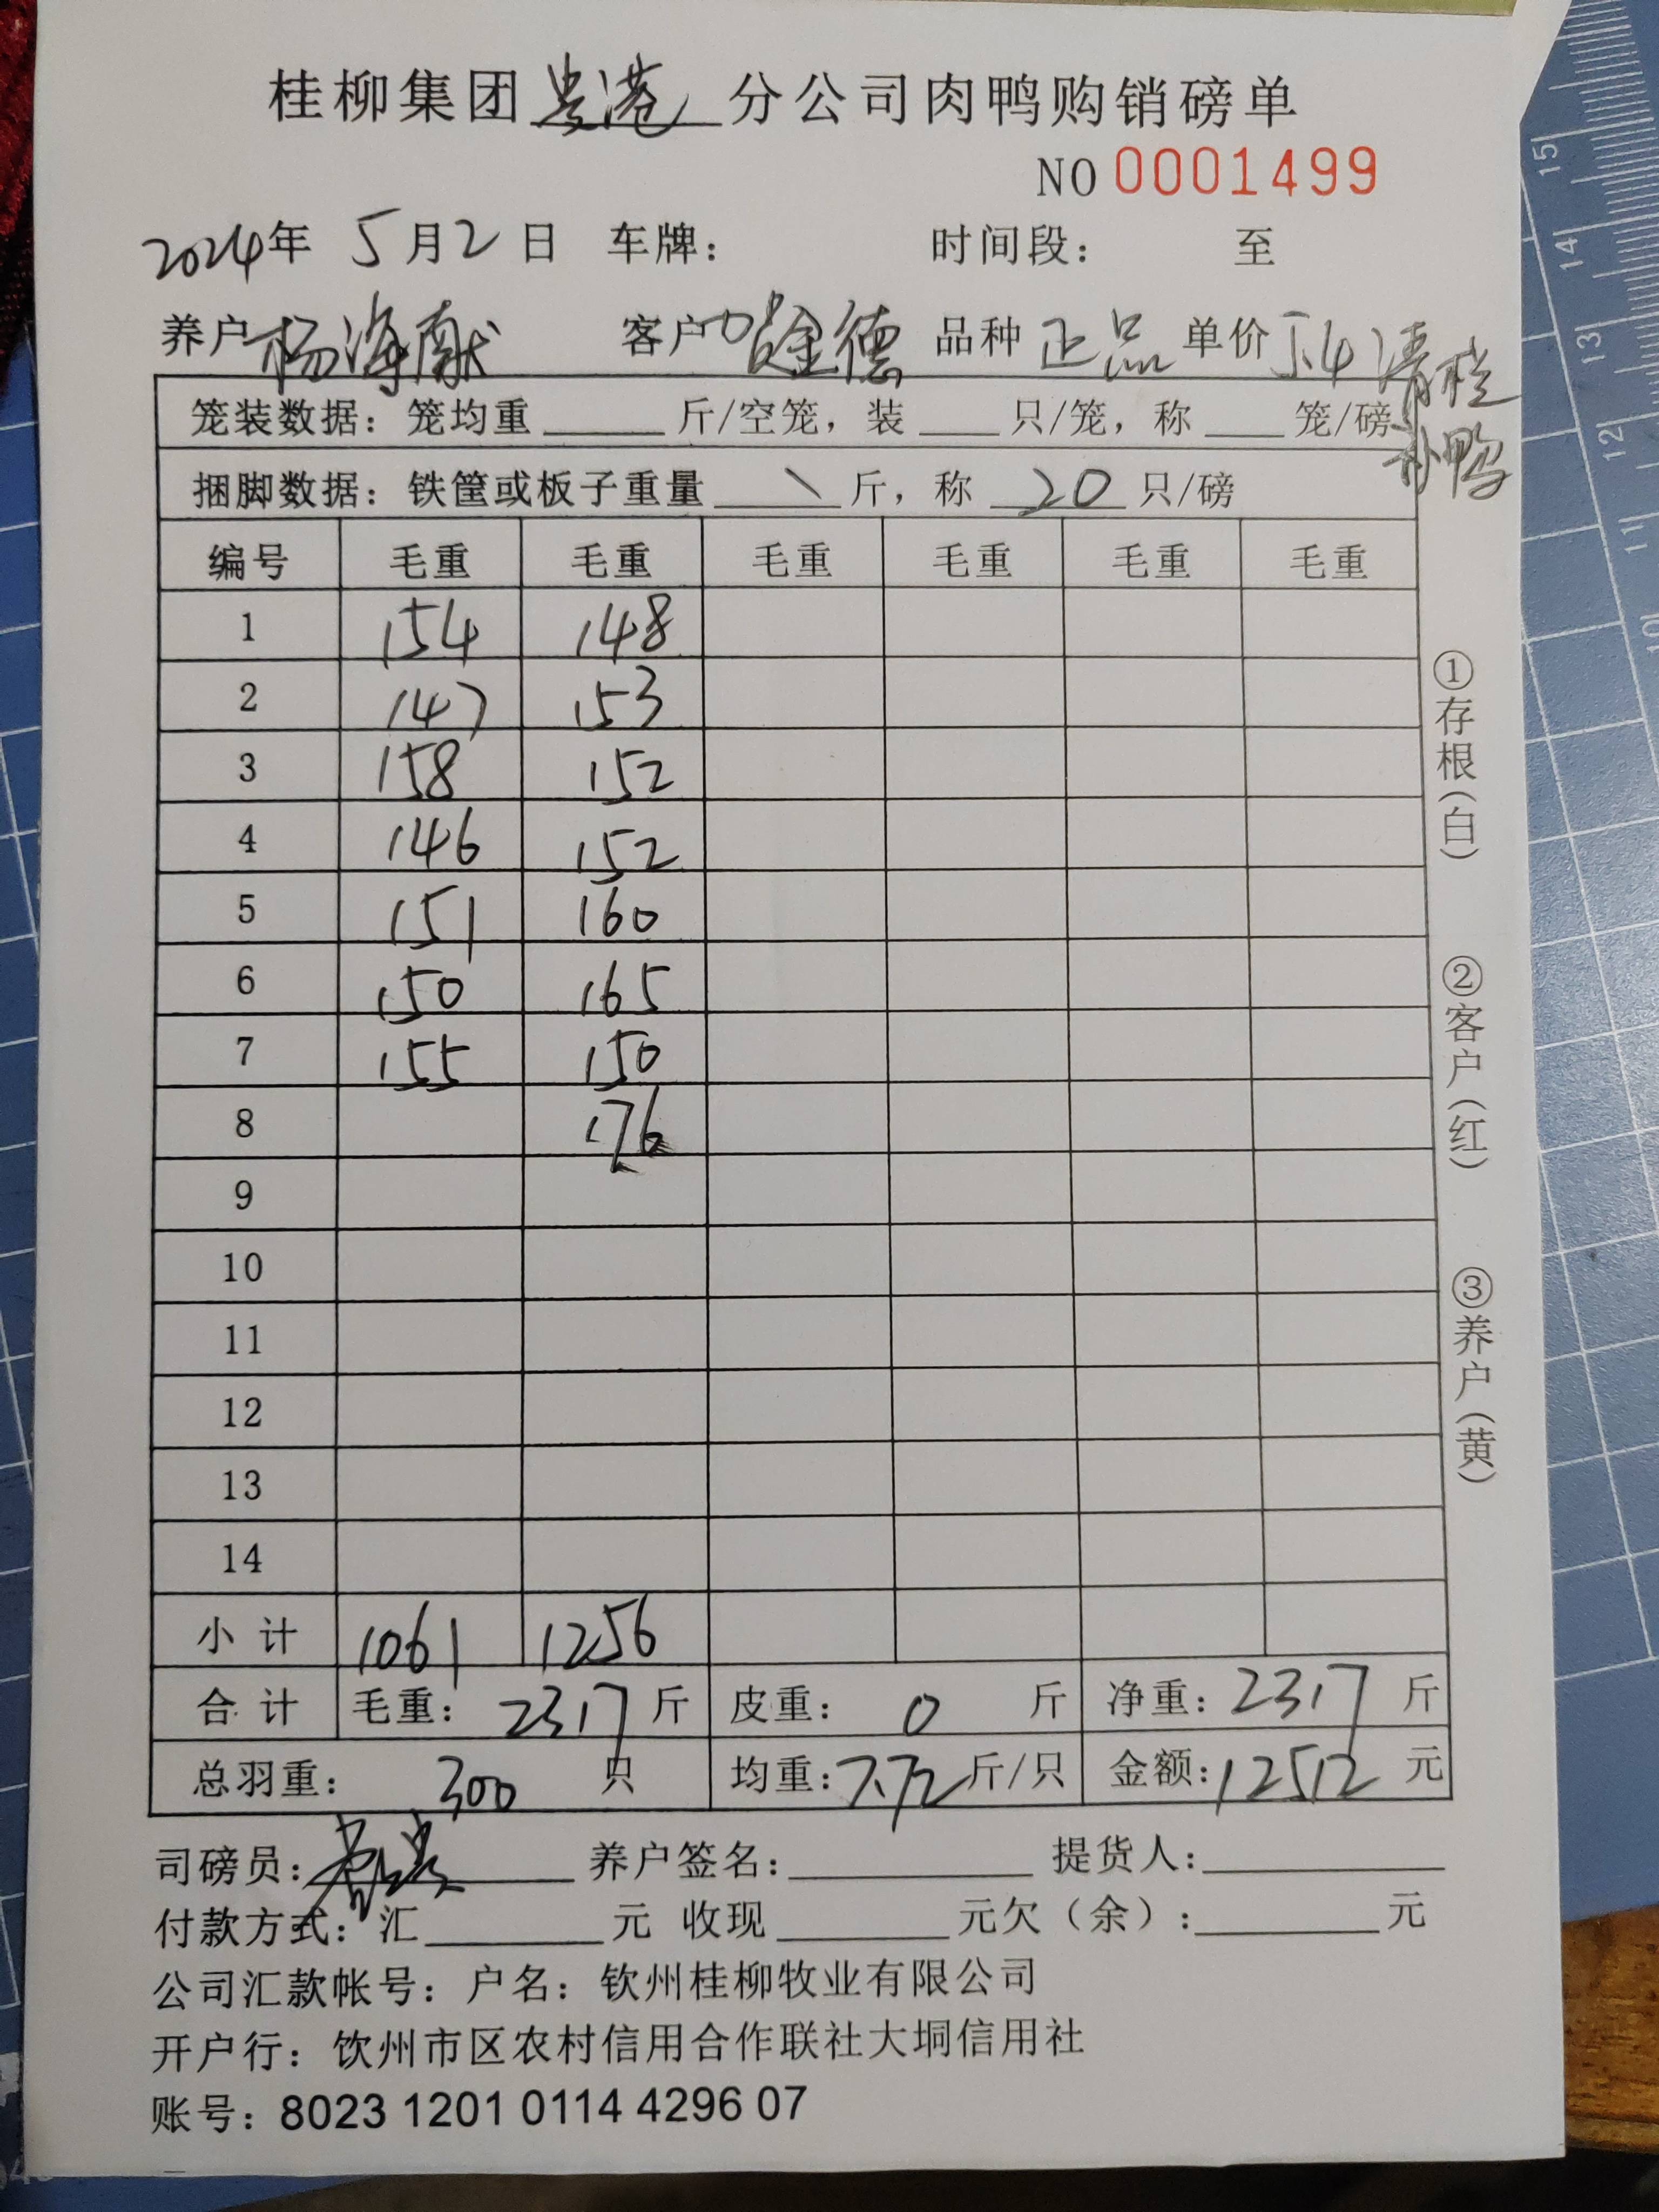 桂柳集团贵港分公司肉鸭购销磅单
NO 0001499
2024年 5月2日 车牌： 时间段： 至
养户杨海献 客户 金德 品种 正品 单价 5.4 清栏
鸭
笼装数据：笼均重______斤/空笼，装____只/笼，称____笼/磅
捆脚数据：铁筐或板子重量 \ 斤，称 20 只/磅
编号 毛重 毛重 毛重 毛重 毛重 毛重
1 154 148
2 147 153
3 158 152
4 146 152
5 151 160
6 150 165
7 155 150
8 176
9
10
11
12
13
14
小计 1061 1256
合计 毛重：2317斤 皮重：0 斤 净重：2317 斤
总羽重：300 只 均重：7.72斤/只 金额：12512 元
司磅员：______ 养户签名：______ 提货人：______
付款方式：汇______元 收现______元欠（余）：______元
公司汇款帐号：户名：钦州桂柳牧业有限公司
开户行：钦州市区农村信用合作联社大垌信用社
账号：8023 1201 0114 4296 07
①存根（白）
②客户（红）
③养户（黄）